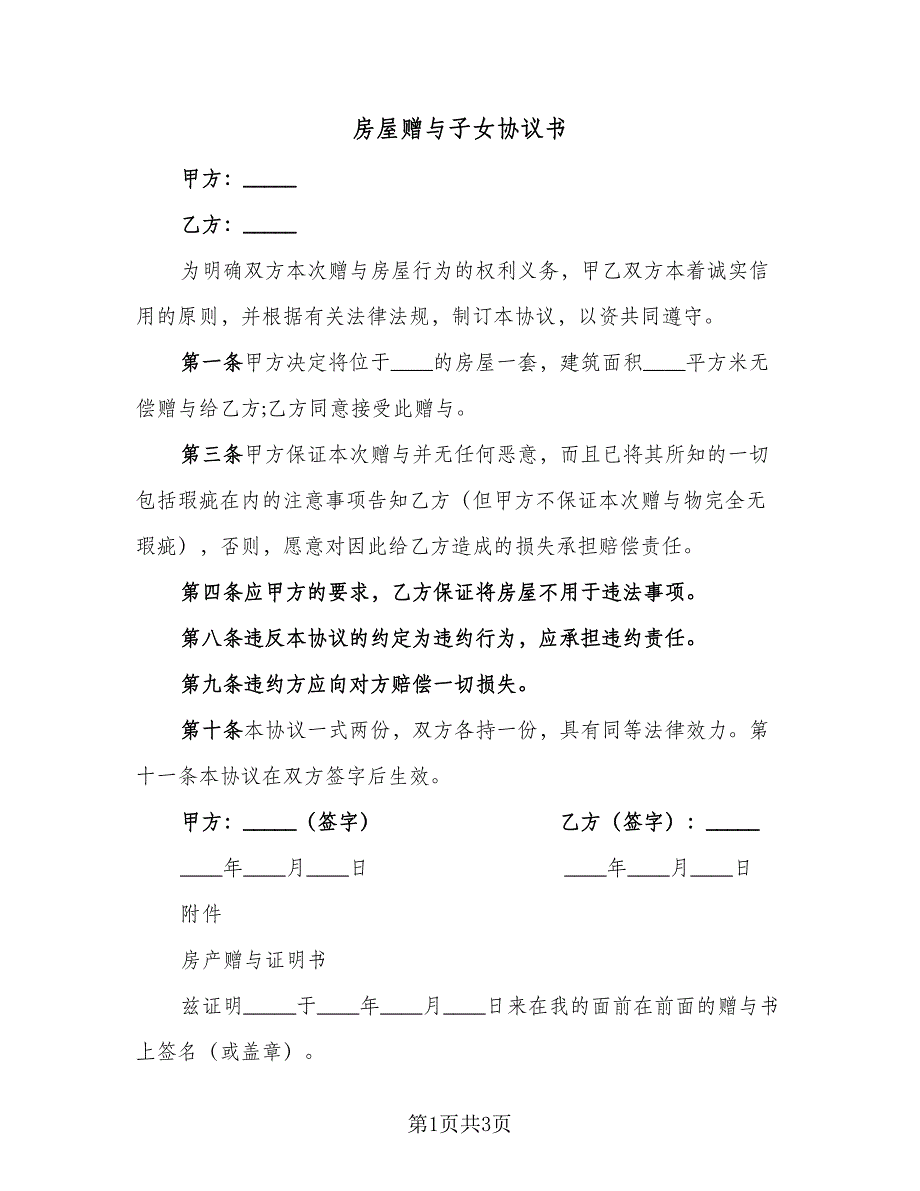 房屋赠与子女协议书
甲方：_____
乙方：_____
为明确双方本次赠与房屋行为的权利义务，甲乙双方本着诚实信
用的原则，并根据有关法律法规，制订本协议，以资共同遵守。
第一条甲方决定将位于____的房屋一套，建筑面积____平方米无
偿赠与给乙方;乙方同意接受此赠与。
第三条甲方保证本次赠与并无任何恶意，而且已将其所知的一切
包括瑕疵在内的注意事项告知乙方（但甲方不保证本次赠与物完全无
瑕疵），否则，愿意对因此给乙方造成的损失承担赔偿责任。
第四条应甲方的要求，乙方保证将房屋不用于违法事项。
第八条违反本协议的约定为违约行为，应承担违约责任。
第九条违约方应向对方赔偿一切损失。
第十条本协议一式两份，双方各持一份，具有同等法律效力。第
十一条本协议在双方签字后生效。
甲方：_____（签字） 乙方（签字）：_____
____年____月____日 ____年____月____日
附件
房产赠与证明书
兹证明_____于____年____月____日来在我的面前在前面的赠与书
上签名（或盖章）。
第1页共3页